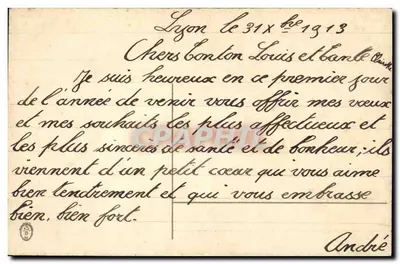 Lyon le 31 Xbre 1913
Chers Tonton Louis et Tante
Je suis heureux en ce premier jour
de l'année de venir vous offrir mes vœux
et mes souhaits les plus affectueux et
les plus sincères de santé et de bonheur; ils
viennent d'un petit cœur qui vous aime
bien tendrement et qui vous embrasse
bien, bien fort.
André